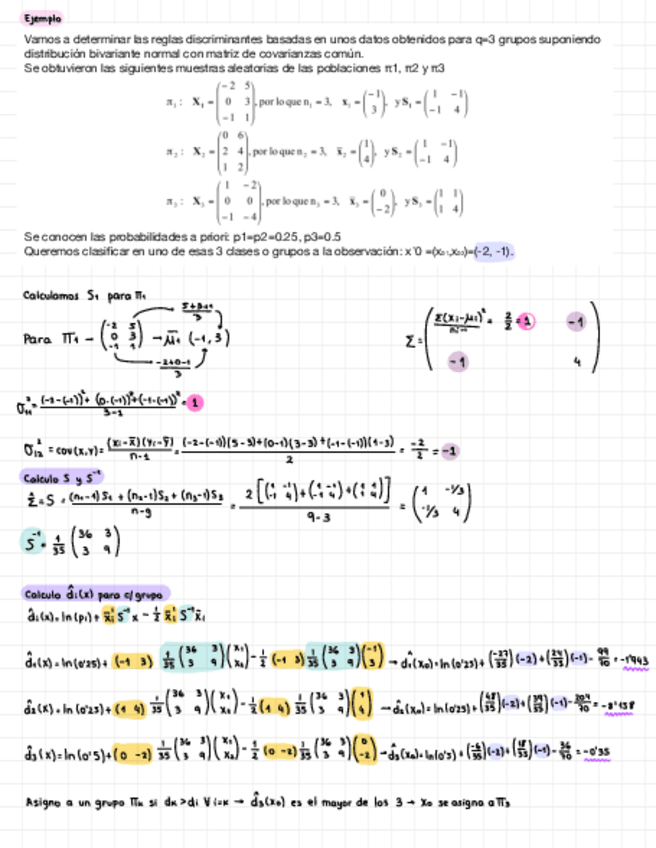 Ejemplo
Vamos a determinar las reglas discriminantes basadas en unos datos obtenidos para q=3 grupos suponiendo
distribución bivariante normal con matriz de covarianzas común.
Se obtuvieron las siguientes muestras aleatorias de las poblaciones π1, π2 y π3
π₁: X₁ = (-2 5; 0 3; -1 1), por lo que n₁ = 3, x̄₁ = (-1; 3), y S₁ = (1 -1; -1 4)
π₂: X₂ = (0 6; 2 4; 1 2), por lo que n₂ = 3, x̄₂ = (1; 4), y S₂ = (1 -1; -1 4)
π₃: X₃ = (1 -2; 0 0; -1 -4), por lo que n₃ = 3, x̄₃ = (0; -2), y S₃ = (1 1; 1 4)
Se conocen las probabilidades a priori: p1=p2=0.25, p3=0.5
Queremos clasificar en uno de esas 3 clases o grupos a la observación: x'0 =(x₀₁,x₀₂)=(-2, -1).
Calculamos S₁ para π₁
5+3+1/3
Para π₁ → (-2 5; 0 3; -1 1) → μ̄₁ (-1, 3)
-2+0-1/3
Σ = (Σ(xᵢ-μᵢ)²/n-1 = 2/2 = 1 -1; -1 4)
σ²₁₁ = (-2-(-1))² + (0-(-1))² + (-1-(-1))² / 3-1 = 1
σ²₁₂ = cov(x,y) = (xᵢ-x̄)(yᵢ-ȳ)/n-1 = (-2-(-1))(5-3)+(0+1)(3-3)+(-1-(-1))(1-3)/2 = -2/2 = -1
Calculo S y S⁻¹
Σ̂ = S = (n₁-1)S₁ + (n₂-1)S₂ + (n₃-1)S₃ / n-g = 2[(1 -1; -1 4)+(1 -1; -1 4)+(1 1; 1 4)] / 9-3 = (1 -1/3; -1/3 4)
S⁻¹ = 1/35 (36 3; 3 9)
Calculo d̂ᵢ(x) para c/grupo
d̂ᵢ(x) = ln(pᵢ) + x̄ᵢ' S⁻¹ x - 1/2 x̄ᵢ' S⁻¹ x̄ᵢ
d̂₁(x) = ln(0'25) + (-1 3) 1/35 (36 3; 3 9)(x₁; x₂) - 1/2 (-1 3) 1/35 (36 3; 3 9)(-1; 3) → d̂₁(x₀) = ln(0'25) + (-27/35)(-2) + (24/35)(-1) - 99/70 = -1'943
d̂₂(x) = ln(0'25) + (1 4) 1/35 (36 3; 3 9)(x₁; x₂) - 1/2 (1 4) 1/35 (36 3; 3 9)(1; 4) → d̂₂(x₀) = ln(0'25) + (48/35)(-2) + (39/35)(-1) - 204/70 = -8'158
d̂₃(x) = ln(0'5) + (0 -2) 1/35 (36 3; 3 9)(x₁; x₂) - 1/2 (0 -2) 1/35 (36 3; 3 9)(0; -2) → d̂₃(x₀) = ln(0'5) + (-6/35)(-2) + (18/35)(-1) - 36/70 = -0'35
Asigno a un grupo πₖ si dₖ > dᵢ ∀ i≠k → d̂₃(x₀) es el mayor de los 3 → x₀ se asigna a π₃